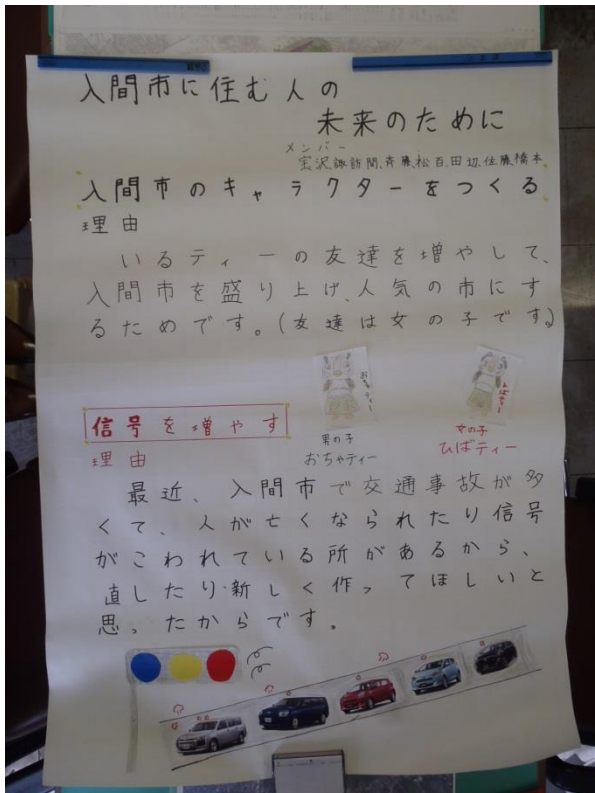 入間市に住む人の
未来のために
メンバー
宝沢、諏訪間、斉藤、松百、田辺、佐藤、橋本
入間市のキャラクターをつくる
理由
いるティーの友達を増やして、
入間市を盛り上げ、人気の市にす
るためです。(友達は女の子です。)
おちゃティー
ひばティー
男の子
おちゃティー
女の子
ひばティー
信号を増やす
理由
最近、入間市で交通事故が多
くて、人が亡くなられたり信号
がこわれている所があるから、
直したり新しく作ってほしいと
思ったからです。